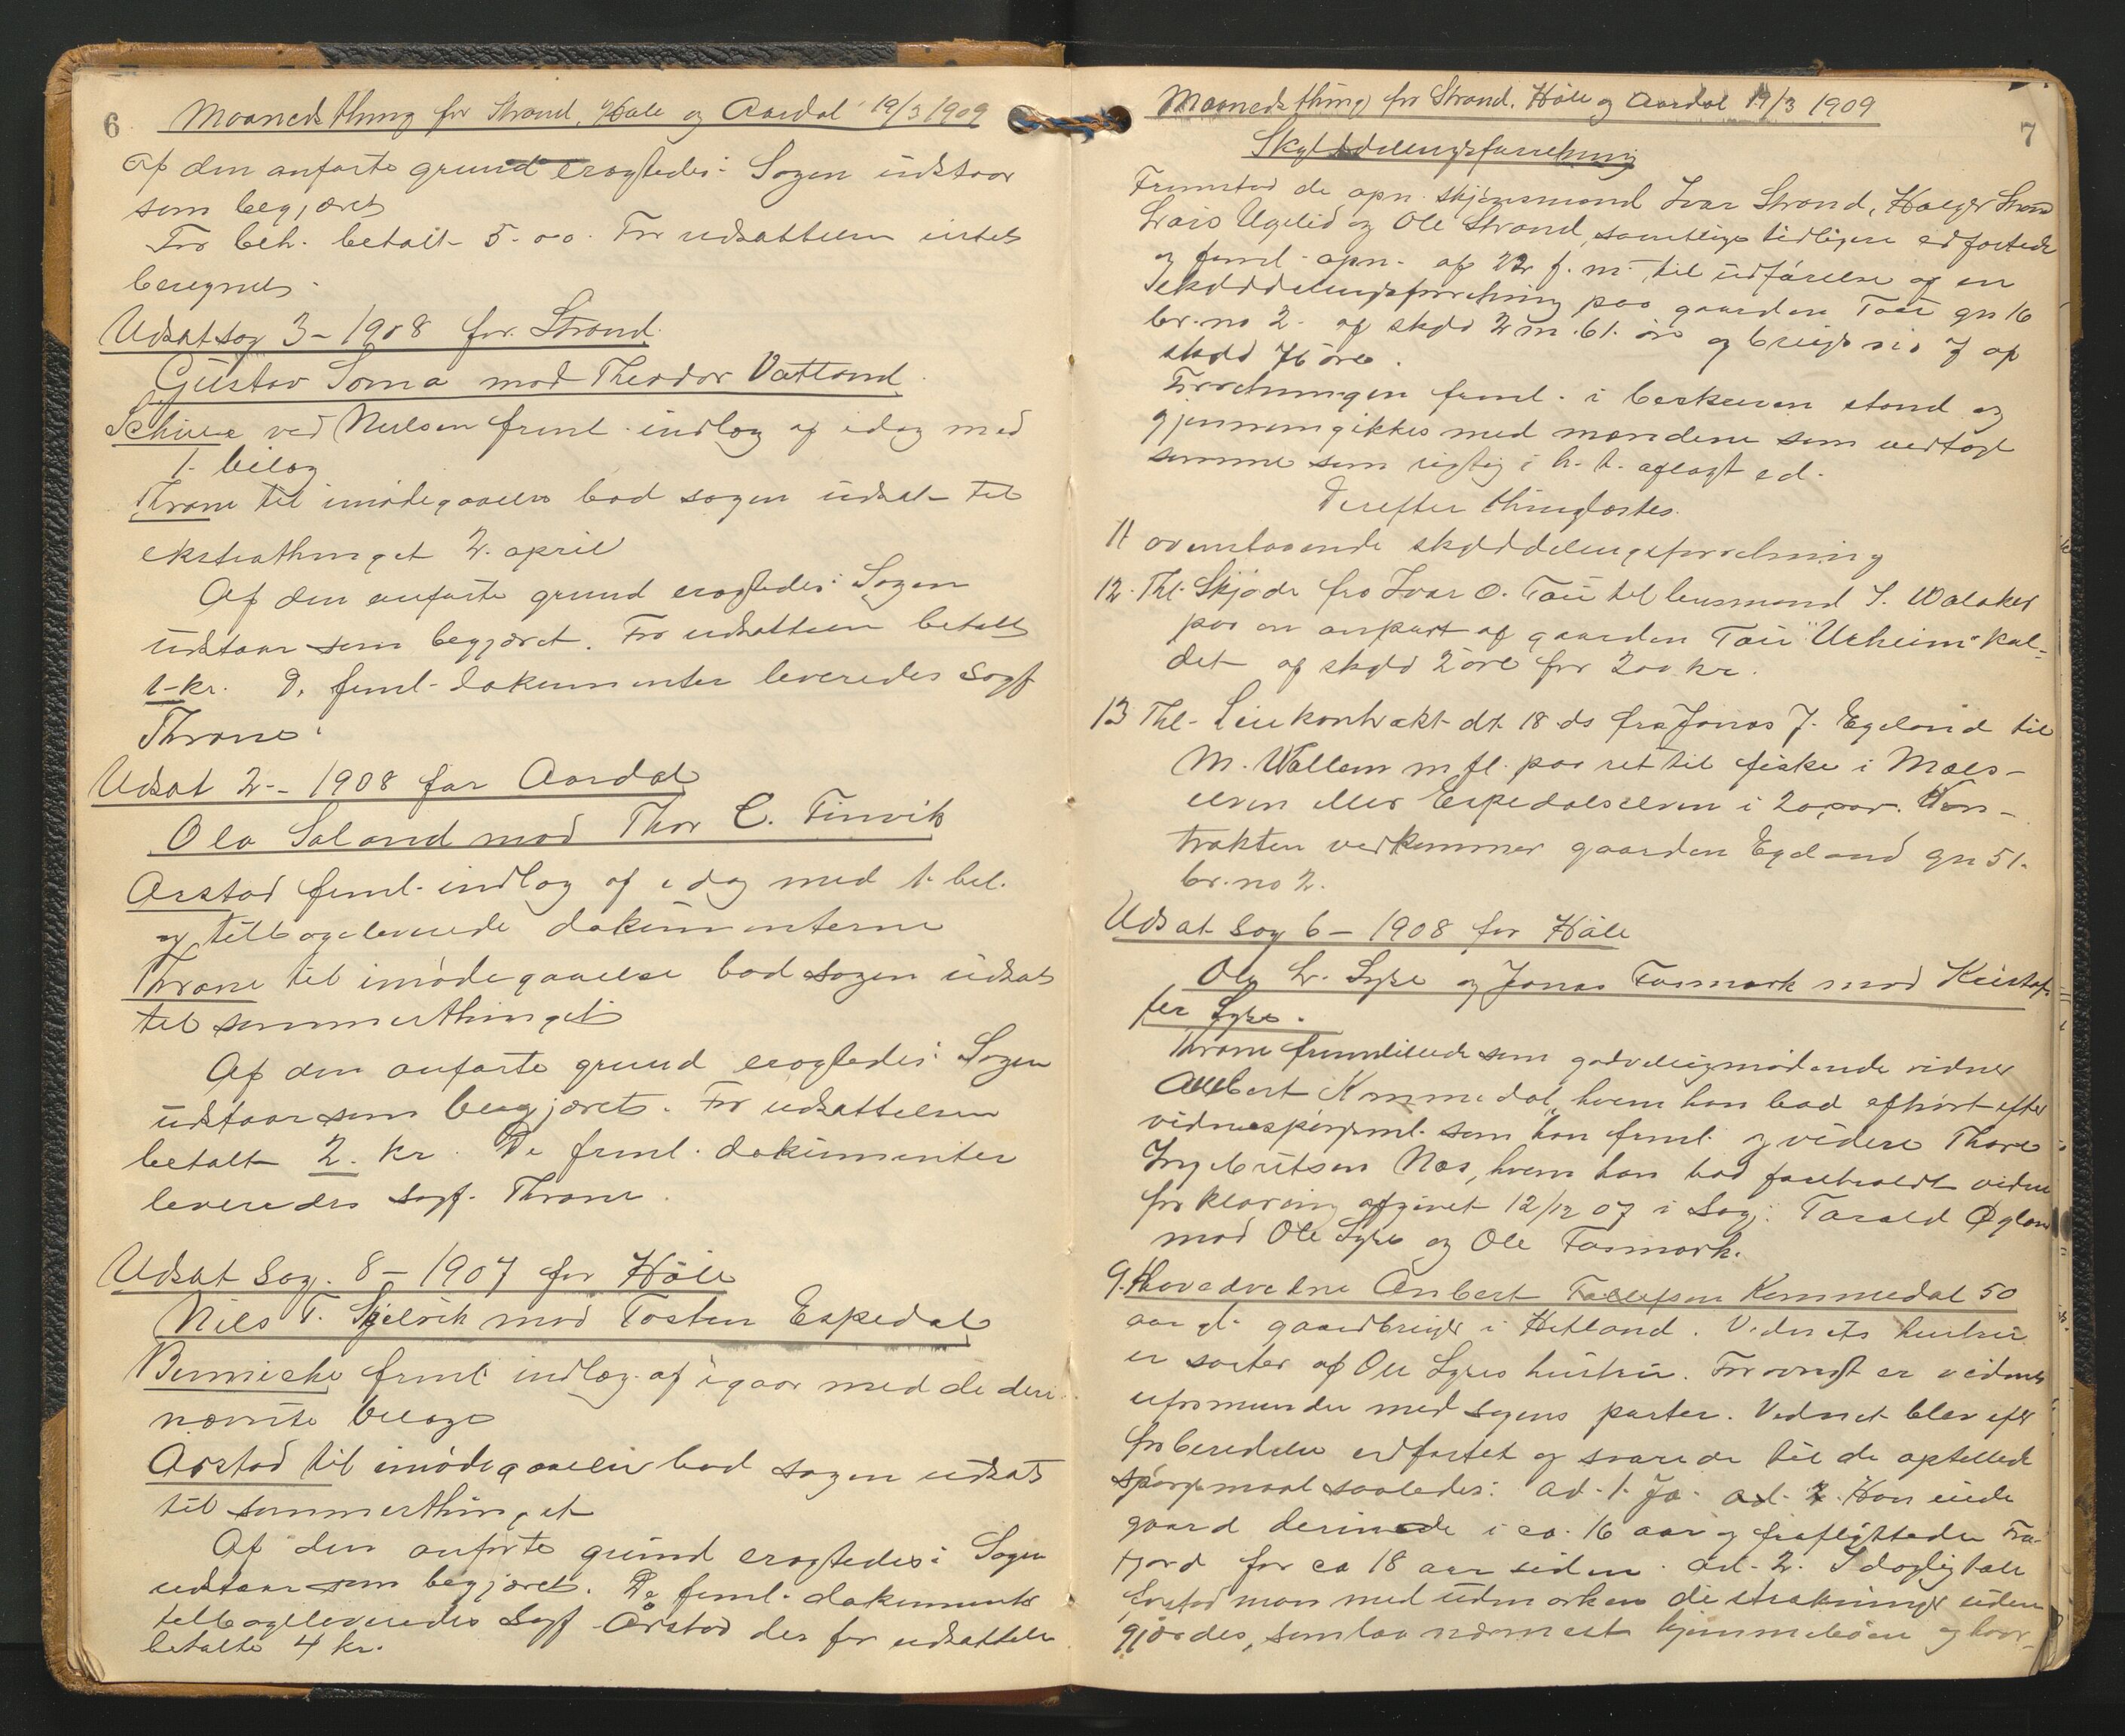 6
Maanedsthing for Strand, Høle og Aardal 19/3 1909
Af den anførte grund eragtedes: Sagen udstaar
som begjæret
For beh. betalt 5.00. For udsættelsen intet
beregnet.
Udsat sag 3 - 1908 for Strand.
Gustav Soma mod Theodor Vatland.
Schiøtz ved Nielsen freml. indlæg af idag med
1. bilag
Throne til imødegaaelse bad sagen udsat til
ekstrathinget 2. april
Af den anførte grund eragtedes: Sagen
udstaar som begjæret. For udsættelsen betalt
1 kr. D. freml. dokumenter leveredes sagf
Throne.
Udsat 2 - 1908 for Aardal
Ola Saland mod Thor C. Finvik
Aarstad freml. indlæg af idag med 1. bil.
og tilbageleverede dokumenterne
Throne til imødegaaelse bad sagen udsat
til sommerthinget
Af den anførte grund eragtedes: Sagen
udstaar som begjæret. For udsættelsen
betalt 2. kr. De freml. dokumenter
leveredes sagf. Throne.
Udsat Sag. 8 - 1907 for Høle
Nils T. Skjelvik mod Tosten Espedal
Benniche freml. indlæg af igaar med de deri
nævnte bilage
Aarstad til imødegaaelse bad sagen udsat
til sommerthinget
Af den anførte grund eragtedes: Sagen
udstaar som begjæret. De freml. dokumenter
tilbageleveredes sagf Årstad der for udsættelse
betalte 4 kr.
7
Maanedsthing for Strand, Høle og Aardal 19/3 1909
Skylddelingsforretning
Fremstod de opn. skjønsmænd Ivar Strand, Holger Strand
Lars Ugelid og Ole Strand, samtlige tidligere edfæstede
og freml. opn. af 22 f. m. til udførelse af en
skylddelingsforretning paa gaarden Tau gn 16
br. no 2. af skyld 2 m. 61. øre og brugs no 7 af
skyld 76 øre.
Forretningen freml. i beskreven stand og
gjennemgikkes med mændene som vedtog
samme som rigtig i h. t. aflagt ed.
Derefter thinglæstes.
11 ovenstaaende skylddelingsforretning
12. Thl. Skjøde fra Ivar O. Tau til lensmand S. Walaker
paa en anpart af gaarden Tau "Urheim" kal-
det af skyld 2 øre for 200 kr.
13 Thl. Leiekontrakt dt. 18 ds fra Jonas J. Egeland til
M. Wallem m fl. paa ret til fiske i Maels-
elven eller Espedalselven i 20 aar. Kon-
trakten vedkommer gaarden Egeland gn 51.
br. no 2.
Udsat sag 6 - 1908 for Høle
Ola L. Lyse og Jonas Fasmark mod Kristof-
fer Lyse.
Throne fremstillede som godvilligmødende vidner
Aanbert Kommedal, hvem han bad afhørt efter
vidnespørgsml. som han freml. og videre Thore
Ingebretsen Næs, hvem han bad foreholdt vidne
forklaring afgivet 12/12 07 i Sag: Tarald Øgland
mod Ole Lyse og Ole Fasmark.
9. Hovedvidne Anbert Tollefsen Kommedal 50
aar gl. gaardbruger i Hetland. Vidnets hustru
er søster af Ole Lyses hustru. Forøvrigt er vidnet
uformunder med sagens parter. Vidnet blev efter
forberedelse edfæstet og svarede til de opstillede
spørgsmaal saaledes: ad. 1. Ja. ad. 2. Han eiede
gaard derinde i ca. 16 aar og fraflyttede Fra-
fjord for ca 18 aar siden. ad. 2. I daglig tale
forstod man med udmarken de strækninger uden
gjærdes, som laa nærmest hjemmebøen og hvor-